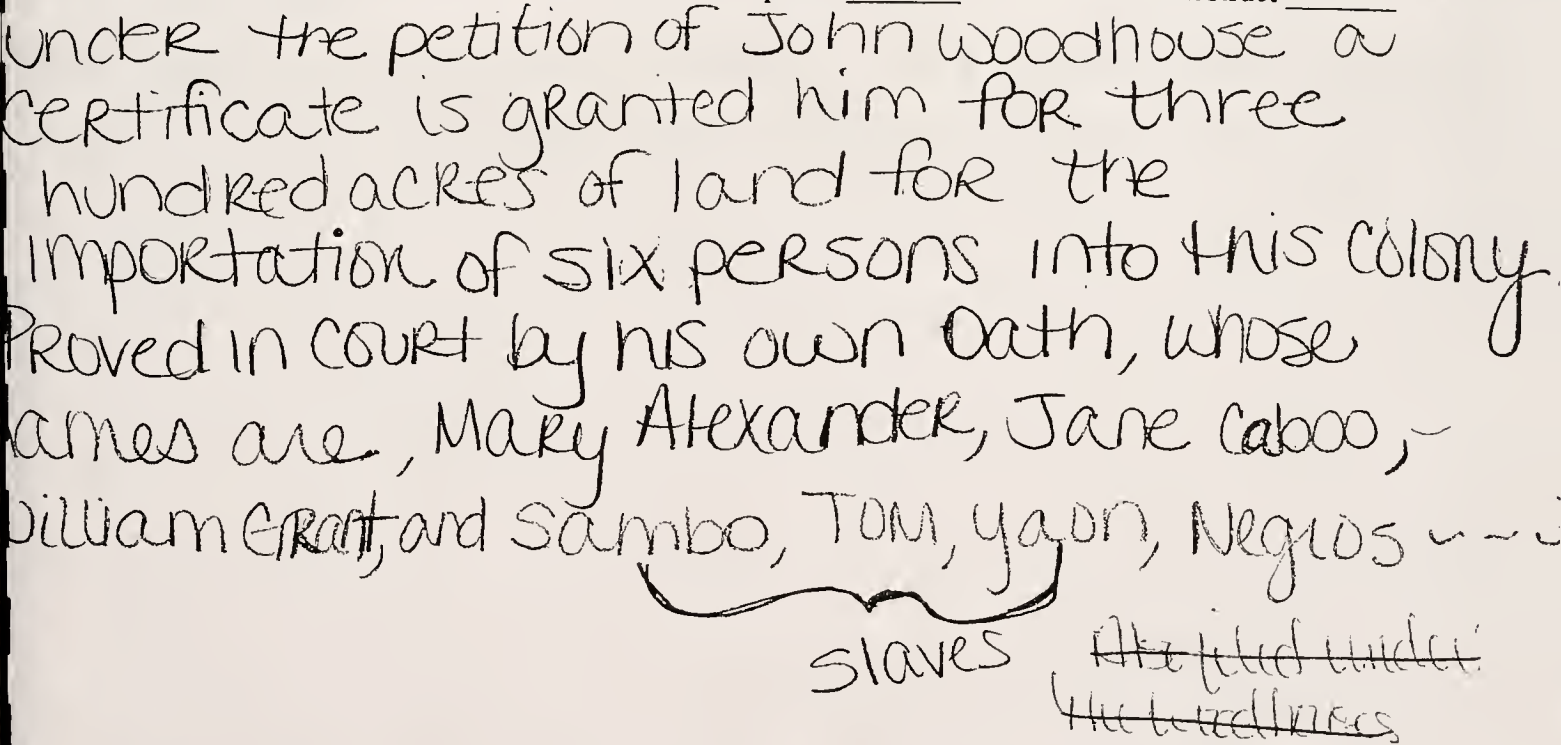 under the petition of John woodhouse a
certificate is granted him for three
hundred acres of land for the
importation of six persons into this Colony.
Proved in court by his own Oath, whose
names are, Mary Alexander, Jane Caboo, -
William Grant, and Sambo, TOM, yaon, Negros - - -
slaves